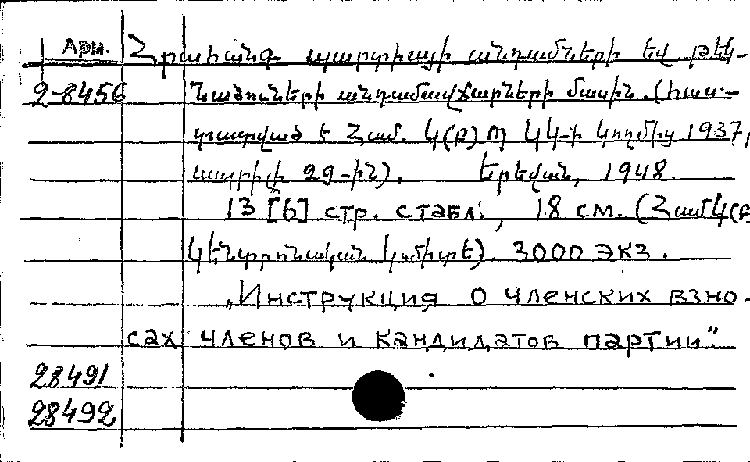 Арм. Հրահանգ պարտիայի անդամների եվ թեկ-
2-8456 նածուների անդամավճարների մասին. (հաս-
տատված է Համ. Կ(բ)Պ ԿԿ-ի կողմից 1937թ
ապրիլի 29-ին). Երեվան, 1948.
13 [6] стр. с табл., 18 см. (ՀամԿ(բ
Կենտրոնական կոմիտե). 3000 экз.
„Инструкция о членских взно-
сах членов и кандидатов партии".
28491
28492